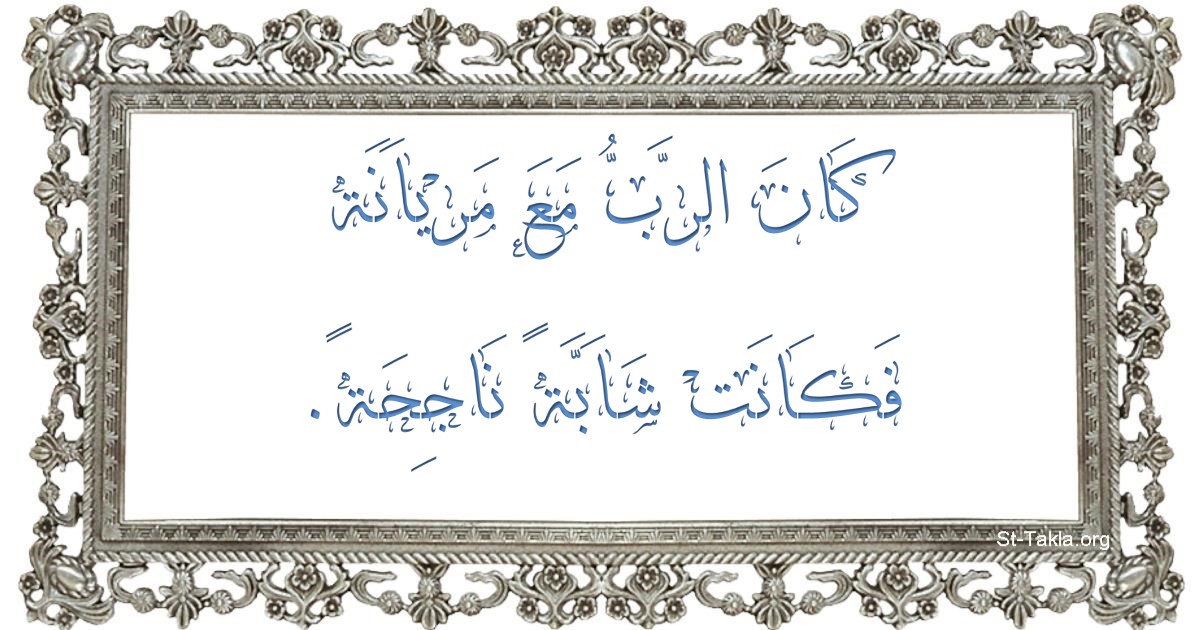 كَانَ الرَّبُّ مَعَ مَرْيَانَة
فَكَانَتْ شَابَّةً نَاجِحَةً.
St-Takla.org